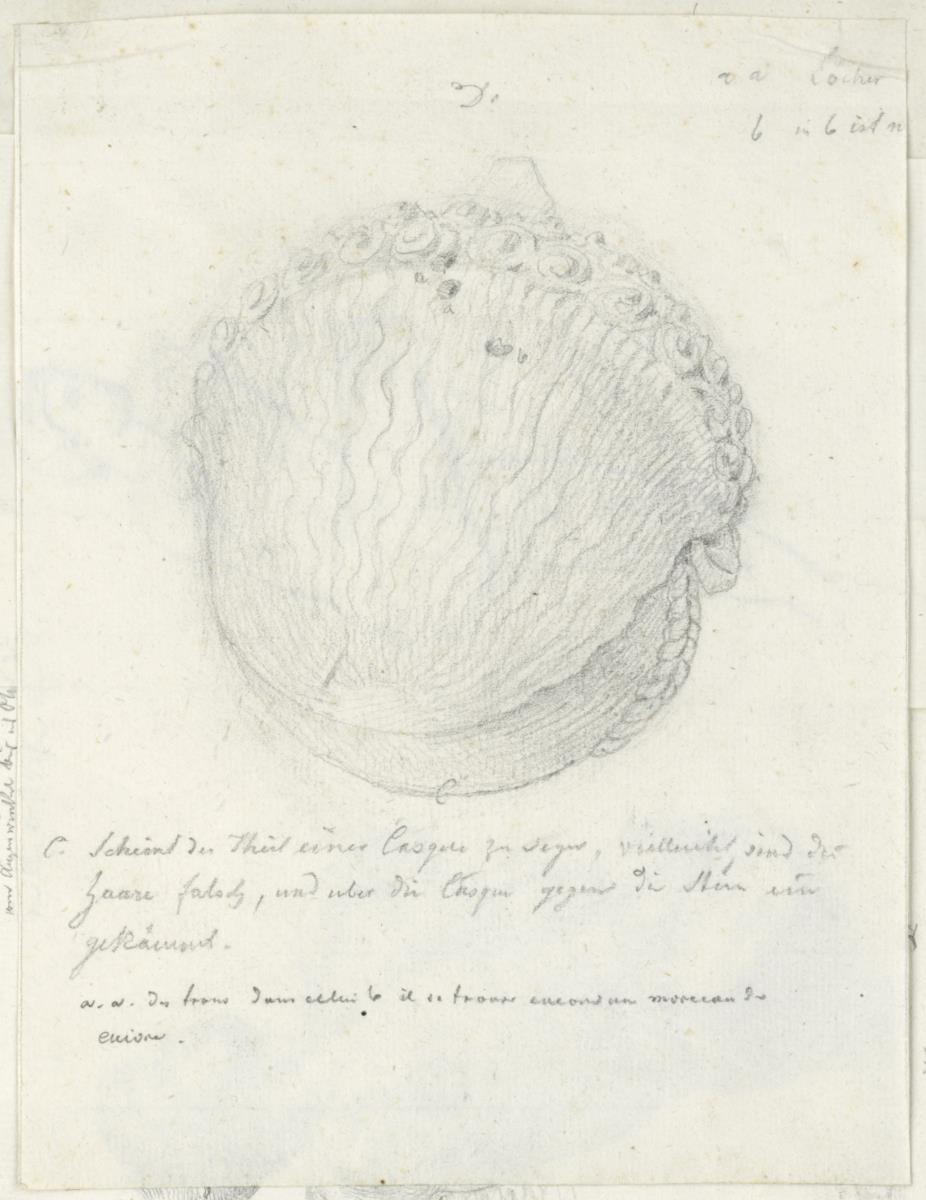 D.
a a Löcher
b in b ist n
a
a
b
C
C. Scheint der Theil einer Casque zu seyn, vielleicht sind die
Haare falsch, und uber die Casque gegen die Stirn ein
gekämmt.
a. a. des trous dans celui b il se trouve encore un morceau de
cuivre.